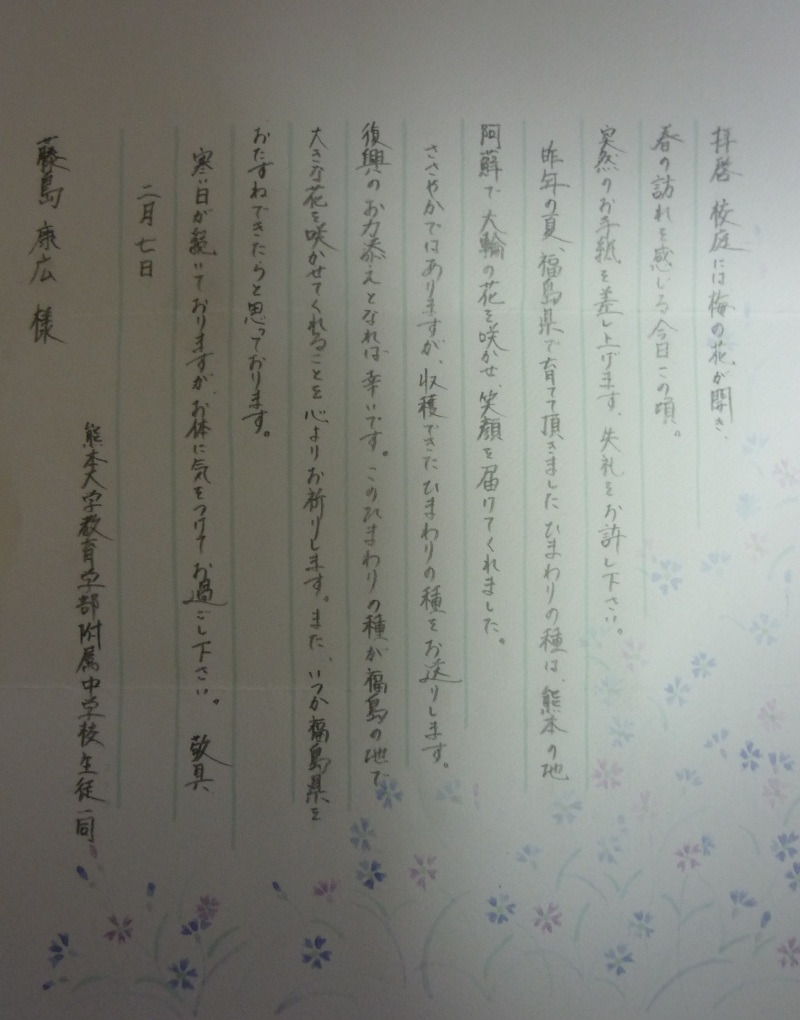 拝啓 校庭には梅の花が開き、
春の訪れを感じる今日この頃。
突然のお手紙を差し上げます、失礼をお許し下さい。
昨年の夏、福島県で育てて頂きましたひまわりの種は、熊本の地
阿蘇で大輪の花を咲かせ、笑顔を届けてくれました。
ささやかではありますが、収穫できたひまわりの種をお送りします。
復興のお力添えとなれば幸いです。このひまわりの種が福島の地で
大きな花を咲かせてくれることを心よりお祈りします。また、いつか福島県を
おたずねできたらと思っております。
寒い日が続いておりますが、お体に気をつけてお過ごし下さい。 敬具
二月七日
熊本大学教育学部附属中学校生徒一同
藤島康広 様